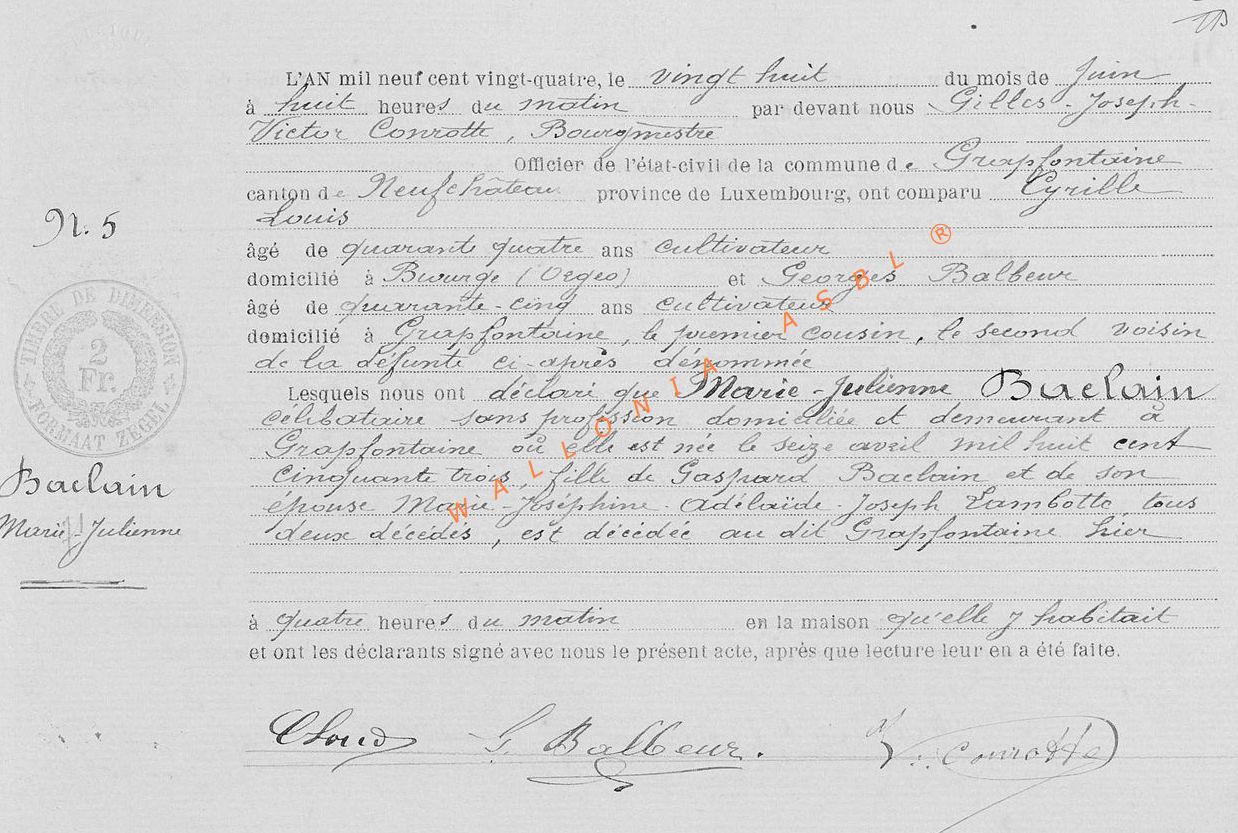 L'AN mil neuf cent vingt-quatre, le vingt huit du mois de Juin
à huit heures du matin par devant nous Gilles-Joseph-
Victor Conrotte, Bourgmestre
Officier de l'état-civil de la commune de Grapfontaine
canton de Neufchâteau province de Luxembourg, ont comparu Cyrille
Louis
N. 5
âgé de quarante quatre ans cultivateur
domicilié à Bwurge (Orgeo) et Georges Balbeur
âgé de quarante-cinq ans cultivateur
domicilié à Grapfontaine, le premier cousin, le second voisin
de la défunte ci-après dénommée
TIMBRE DE DIMENSION
2
Fr.
FORMAAT ZEGEL
Lesquels nous ont déclaré que Marie-Julienne Baclain
célibataire sans profession domiciliée et demeurant à
Grapfontaine où elle est née le seize avril mil huit cent
cinquante trois, fille de Gaspard Baclain et de son
épouse Marie-Joséphine-Adélaïde-Joseph Lambotte, tous
deux décédés, est décédée au dit Grapfontaine hier
Baclain
Marie-Julienne
à quatre heures du matin en la maison qu'elle y habitait
et ont les déclarants signé avec nous le présent acte, après que lecture leur en a été faite.
G. Balbeur. V. Conrotte
WALLONIA ASBL ®